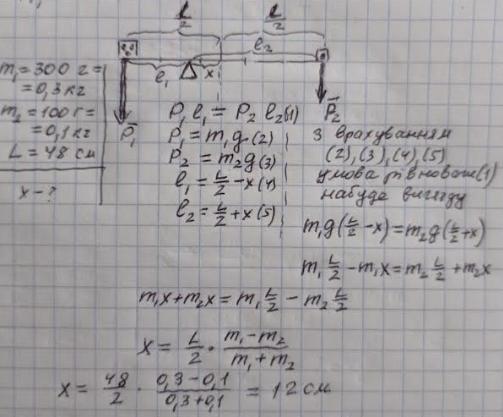 L/2 L/2
m₁ = 300 г =
= 0,3 кг
m₂ = 100 г =
= 0,1 кг
L = 48 см
x - ?
m₁ m₂
ℓ₁ x ℓ₂
P₁ P₂
P₁ ℓ₁ = P₂ ℓ₂ (1)
P₁ = m₁g (2)
P₂ = m₂g (3)
ℓ₁ = L/2 - x (4)
ℓ₂ = L/2 + x (5)
З врахуванням
(2), (3), (4), (5)
умова рівноваги (1)
набуде вигляду
m₁g(L/2 - x) = m₂g(L/2 + x)
m₁ L/2 - m₁x = m₂ L/2 + m₂x
m₁x + m₂x = m₁ L/2 - m₂ L/2
x = L/2 · (m₁ - m₂)/(m₁ + m₂)
x = 48/2 · (0,3 - 0,1)/(0,3 + 0,1) = 12 см